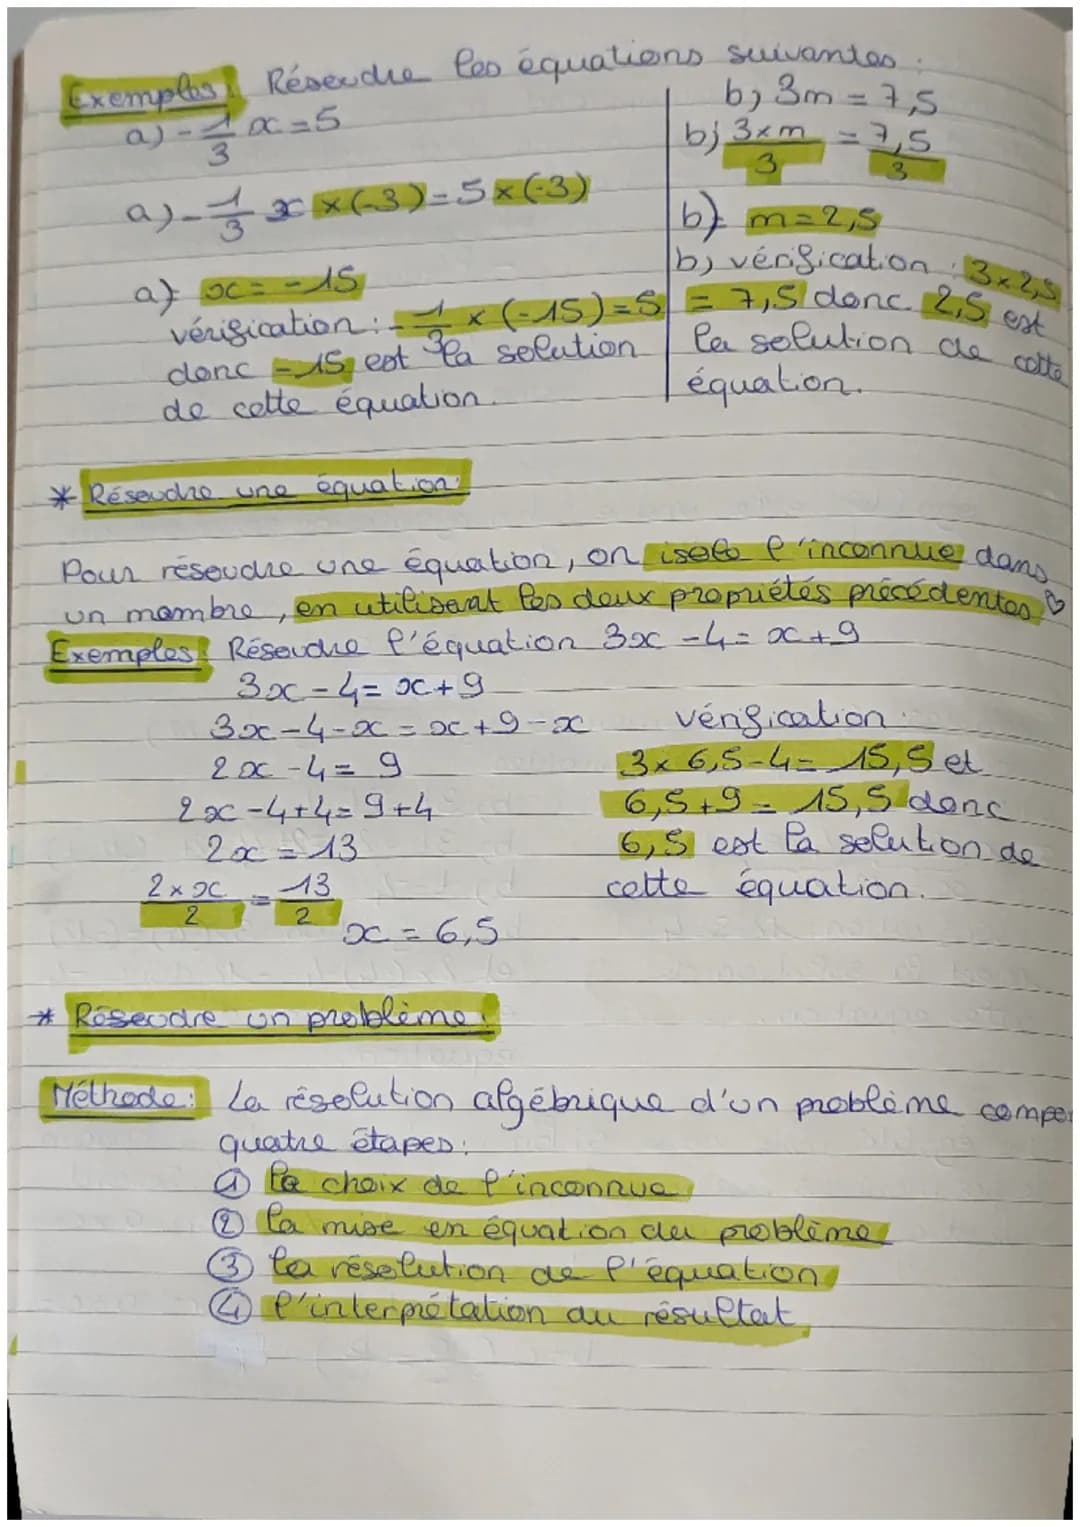 Exemples: Résoudre les équations suivantes:
a) -1/3 x = 5
a) -1/3 x ×(-3) = 5 ×(-3)
a) x = -15
vérification: -1/3 × (-15) = 5
donc -15 est la solution
de cette équation.
b) 3m = 7,5
b) 3×m/3 = 7,5/3
b) m = 2,5
b) vérification : 3×2,5
= 7,5 donc 2,5 est
la solution de cette
équation.
* Résoudre une équation:
Pour résoudre une équation, on isole l'inconnue dans
un membre, en utilisant les deux propriétés précédentes ♡
Exemples: Résoudre l'équation 3x - 4 = x + 9
3x - 4 = x + 9
3x - 4 - x = x + 9 - x
2x - 4 = 9
2x - 4 + 4 = 9 + 4
2x = 13
2×x/2 = 13/2
x = 6,5
vérification:
3 × 6,5 - 4 = 15,5 et
6,5 + 9 = 15,5 donc
6,5 est la solution de
cette équation.
* Résoudre un problème:
Méthode: La résolution algébrique d'un problème compor
quatre étapes:
① le choix de l'inconnue
② la mise en équation du problème
③ la résolution de l'équation
④ l'interprétation du résultat